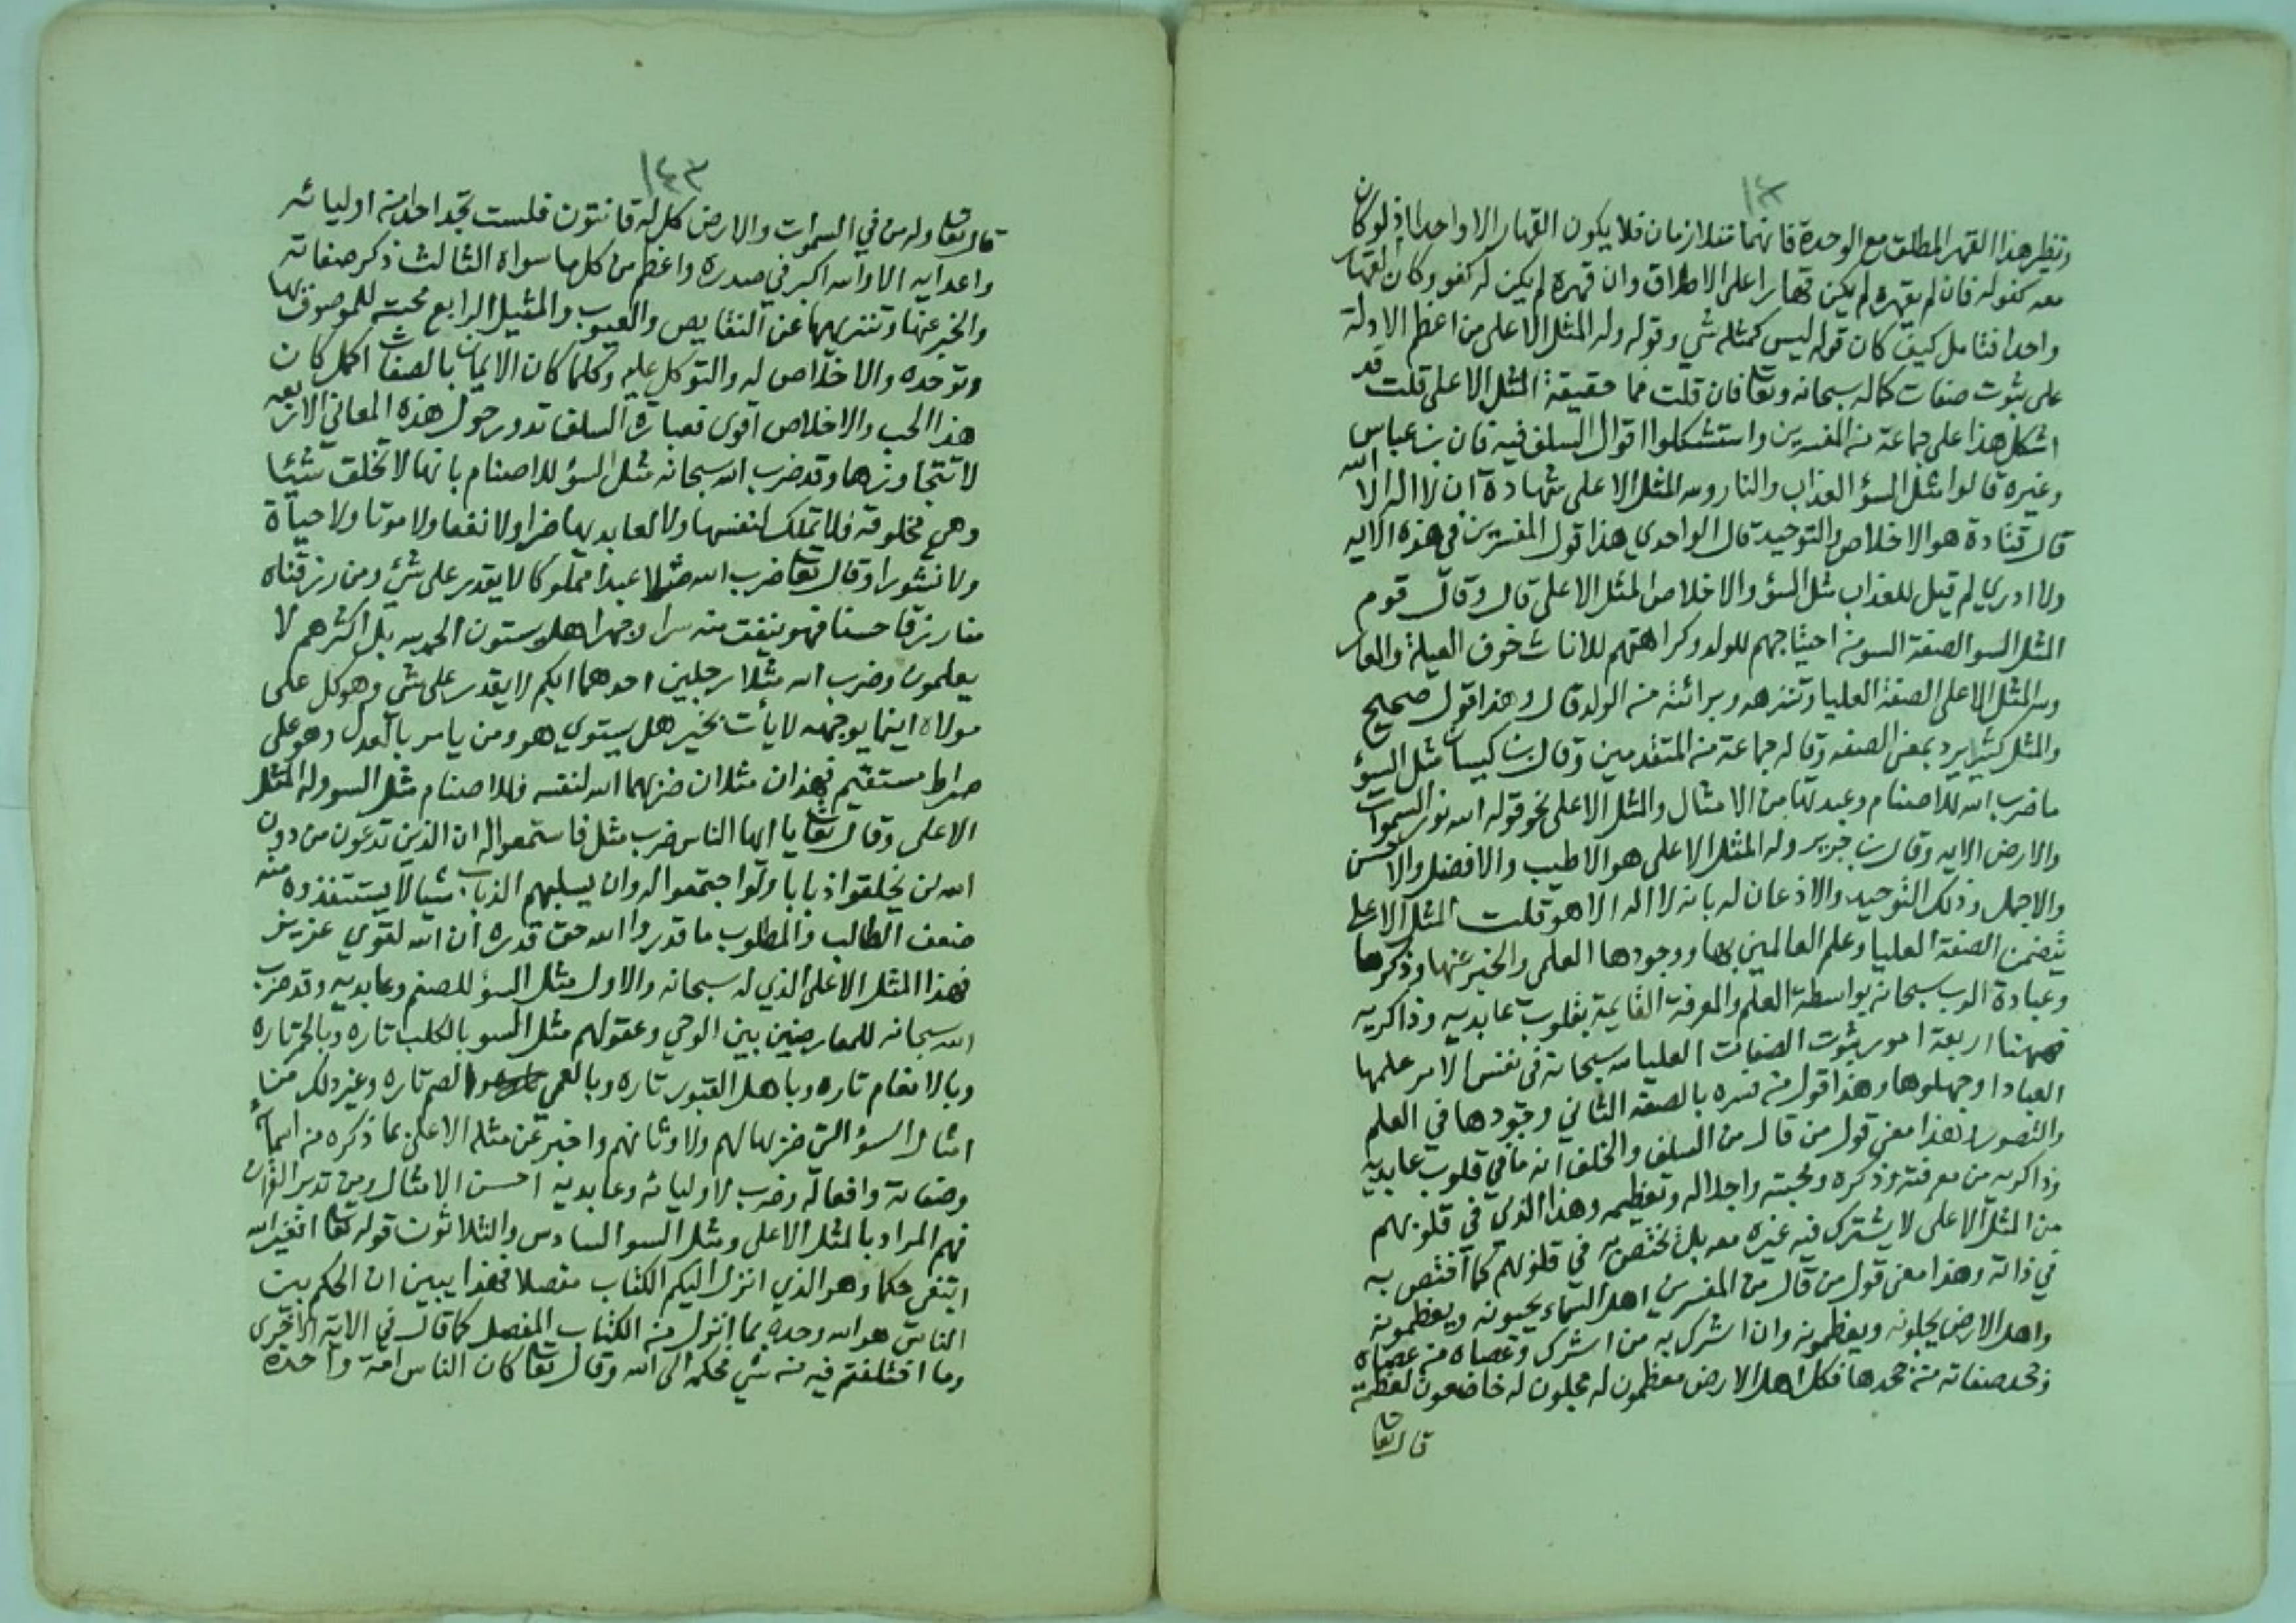 ونظير هذا القهر المطلق مع الوحدة فانهما متلازمان فلا يكون القهار الا واحدا اذ لو كان
معه كفو له فان لم يقهره لم يكن قهارا على الاطلاق وان قهره لم يكن له كفو وكان القهار
واحدا فتامل كيف كان قوله ليس كمثله شي وقوله وله المثل الاعلى من اعظم الادلة
على ثبوت صفات كماله سبحانه وتعا فان قلت فما حقيقة المثل الاعلى قلت قد
اشكل هذا على جماعة من المفسرين واستشكلوا اقوال السلف فيه فان بن عباس
وغيره قالوا مثل السؤ العذاب والنار ولله المثل الاعلى شهادة ان لا اله الا الله
قال قتادة هو الاخلاص والتوحيد قال الواحدي هذا قول المفسرين في هذه الايه
ولا ادري لم قيل للعذاب مثل السؤ والاخلاص المثل الاعلى قال وقال قوم
المثل السو الصفة السو من احتياجهم للولد وكراهتهم للاناث خوف العيلة والعار
ولله المثل الاعلى الصفة العليا وتنزهه وبرائته من الولد قال وهذا قول صحيح
والمثل كثيرا يرد بمعنى الصفه وقاله جماعة من المتقدمين وقال بن كيسان مثل السؤ
ما ضرب الله للاصنام وعبدتها من الامثال والمثل الاعلى نحو قوله الله نور السموات
والارض الايه وقال بن جرير وله المثل الاعلى هو الاطيب والافضل والاحسن
والاجمل وذلك التوحيد والاذعان له بانه لا اله الا هو قلت المثل الاعلى
يتضمن الصفة العليا وعلم العالمين بها ووجودها العلمي والخبر عنها وذكرها
وعبادة الرب سبحانه بواسطة العلم والمعرفة القايمة بقلوب عابديه وذاكريه
فههنا اربعة امور ثبوت الصفات العليا لله سبحانه في نفس الامر علمها
العباد او جهلوها وهذا قول من فسره بالصفه الثاني وجودها في العلم
والتصور وهذا معنى قول من قال من السلف والخلف انه ما في قلوب عابديه
وذاكريه من معرفته وذكره ومحبته واجلاله وتعظيمه وهذا الذي في قلوبهم
من المثل الاعلى لا يشترك فيه غيره معه بل يختص به في قلوبهم كما اختص به
في ذاته وهذا معنى قول من قال من المفسرين اهل السماء يحبونه ويعظمونه
واهل الارض يجلونه ويعظمونه وان اشرك به من اشرك وعصاه من عصاه
وجحد صفاته من جحدها فكل اهل الارض معظمون له مجلون له خاضعون لعظمته
قال تعا
١٤٣
قال تعا وله من في السموات والارض كل له قانتون فلست تجد احدا من اوليائه
واعدايه الا والله اكبر في صدره واعظم من كل ما سواه الثالث ذكر صفاته
والخبر عنها وتنزيهها عن النقايص والعيوب والمثيل الرابع محبته للموصوف بها
وتوحده والاخلاص له والتوكل عليه وكلما كان الايمان بالصفات اكمل كان
هذا الحب والاخلاص اقوى فعبارة السلف تدور حول هذه المعاني الاربعه
لا تتجاوزها وقد ضرب الله سبحانه مثل السؤ للاصنام بانها لا تخلق شيئا
وهي مخلوقه فلا تملك لنفسها ولا لعابديها ضرا ولا نفعا ولا موتا ولا حياة
ولا نشورا وقال تعا ضرب الله مثلا عبدا مملوكا لا يقدر على شيء ومن رزقناه
منا رزقا حسنا فهو ينفق منه سرا وجهرا هل يستون الحمد لله بل اكثرهم لا
يعلمون وضرب الله مثلا رجلين احدهما ابكم لا يقدر على شي وهو كل على
مولاه اينما يوجهه لا يأت بخير هل يستوي هو ومن يامر بالعدل وهو على
صراط مستقيم فهذان مثلان ضربهما الله لنفسه فللاصنام مثل السو وله المثل
الاعلى وقال تعا يا ايها الناس ضرب مثل فاستمعوا له ان الذين تدعون من دون
الله لن يخلقوا ذبابا ولو اجتمعوا له وان يسلبهم الذباب شيا لا يستنقذوه منه
ضعف الطالب والمطلوب ما قدروا الله حق قدره ان الله لقوي عزيز
فهذا المثل الاعلى الذي له سبحانه والاول مثل السؤ للصنم وعابديه وقد ضرب
الله سبحانه للمعارضين بين الوحي وعقولهم مثل السو بالكلب تاره وبالحمر تاره
وبالانعام تاره وباهل القبور تاره وبالعمي والصم تاره وغير ذلك من
امثال السؤ التي ضربها لهم ولاوثانهم واخبر عن مثله الاعلى بما ذكره من اسمائه
وصفاته وافعاله وضرب لاوليائه وعابديه احسن الامثال ومن تدبر القران
فهم المراد بالمثل الاعلى ومثل السو السادس والثلاثون قوله تعا افغير الله
ابتغي حكما وهو الذي انزل اليكم الكتاب مفصلا فهذا يبين ان الحكم بين
الناس هو الله وحده بما انزل من الكتاب المفصل كما قال في الاية الاخرى
وما اختلفتم فيه من شي فحكمه الى الله وقال تعا كان الناس امة واحدة